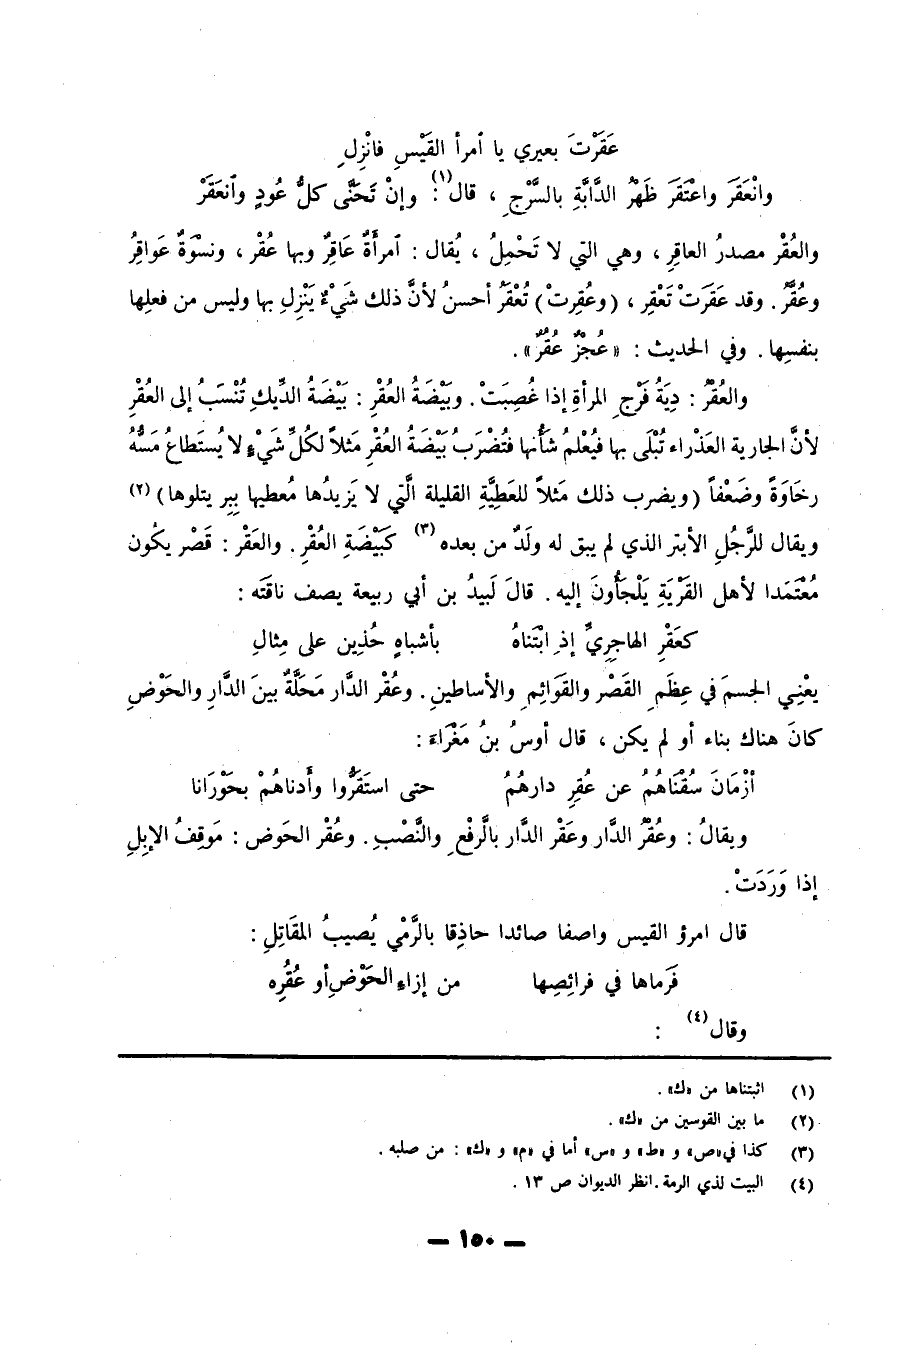 عَقَرْتَ بعيري يا ٱمرأ القَيْسِ فانْزِلِ
وانْعَقَرَ واعْتَقَرَ ظَهْرُ الدَّابَّةِ بالسَّرْجِ ، قال(١): وإنْ تَحَنَّى كلُّ عُودٍ وٱنعَقَرْ
والعُقْرُ مصدرُ العاقِرِ ، وهي التي لا تَحْمِلُ ، يُقال : ٱمرأةٌ عَاقِرٌ وبها عُقْر ، ونسْوَةٌ عَواقِرُ
وعُقَّرٌ . وقد عَقَرَتْ تَعْقِر ، (وعُقِرتْ) تُعْقَرُ أحسنُ لأنَّ ذلك شَيْءٌ يَنْزِلِ بها وليس من فعلِها
بنفسِها . وفي الحديث : «عُجُزٌ عُقُرٌ» .
والعُقْرُ : دِيَةُ فَرْجِ المرأةِ إذا غُصِبَتْ . وبَيْضَةُ العُقْرِ : بَيْضَةُ الدِّيكِ تُنْسَبُ إلى العُقْرِ
لأنَّ الجارية العَذْراء تُبْلَى بها فيُعْلمُ شَأنُها فتُضْرَبُ بَيْضَةُ العُقْرِ مَثلاً لكُلِّ شَيْءٍ لا يُستَطاعُ مَسُّهُ
رخَاوَةً وضَعْفاً (ويضرب ذلك مَثلاً للعَطِيَّةِ القليلة الَّتي لا يَزيدُها مُعطيها ببِر يتلوها) (٢)
ويقال للرَّجُلِ الأبتر الذي لم يبق له ولَدٌ من بعده (٣) كَبَيْضَةِ العُقْرِ . والعَقْر : قَصْر يكُون
مُعْتَمَدا لأهل القَرْيَةِ يَلْجَأُونَ إليه . قالَ لَبيدُ بن أبي ربيعة يصف ناقَتَه :
كعَقْرِ الهاجِرِيِّ إذِ ابْتَناهُ بأشباهٍ حُذِين على مِثالِ
يعْنِي الجسمَ في عِظَمِ القَصْر والقَوَائِمِ والأساطينِ . وعُقْر الدَّار مَحَلَّةٌ بينَ الدَّارِ والحَوْضِ
كانَ هناك بناء أو لم يكن ، قال أوسُ بنُ مَغْرَاءَ :
أزْمَانَ سُقْنَاهُمُ عن عُقِرِ دارهُمُ حتى استَقَرُّوا وأَدناهُمْ بحَوْرَانا
ويقالُ : وعُقْرُ الدَّار وعَقْر الدَّار بالَّرفْعِ والنَّصْبِ . وعُقْر الحَوض : مَوقِفُ الإبِلِ
إذا وَرَدَتْ .
قال امرؤ القيس واصفا صائدا حاذِقا بالرَّمْي يُصيبُ المقَاتِلِ :
فَرماها في فرائِصِها من إزاءِ الحَوْضِ أو عُقُرِه
وقال(٤) :
(١) اثبتناها من «ك» .
(٢) ما بين القوسين من «ك» .
(٣) كذا في «ص» و «ط» و «س» أما في «م» و «ك» : من صلبه .
(٤) البيت لذي الرمة .انظر الديوان ص ١٣ .
— ١٥٠ —